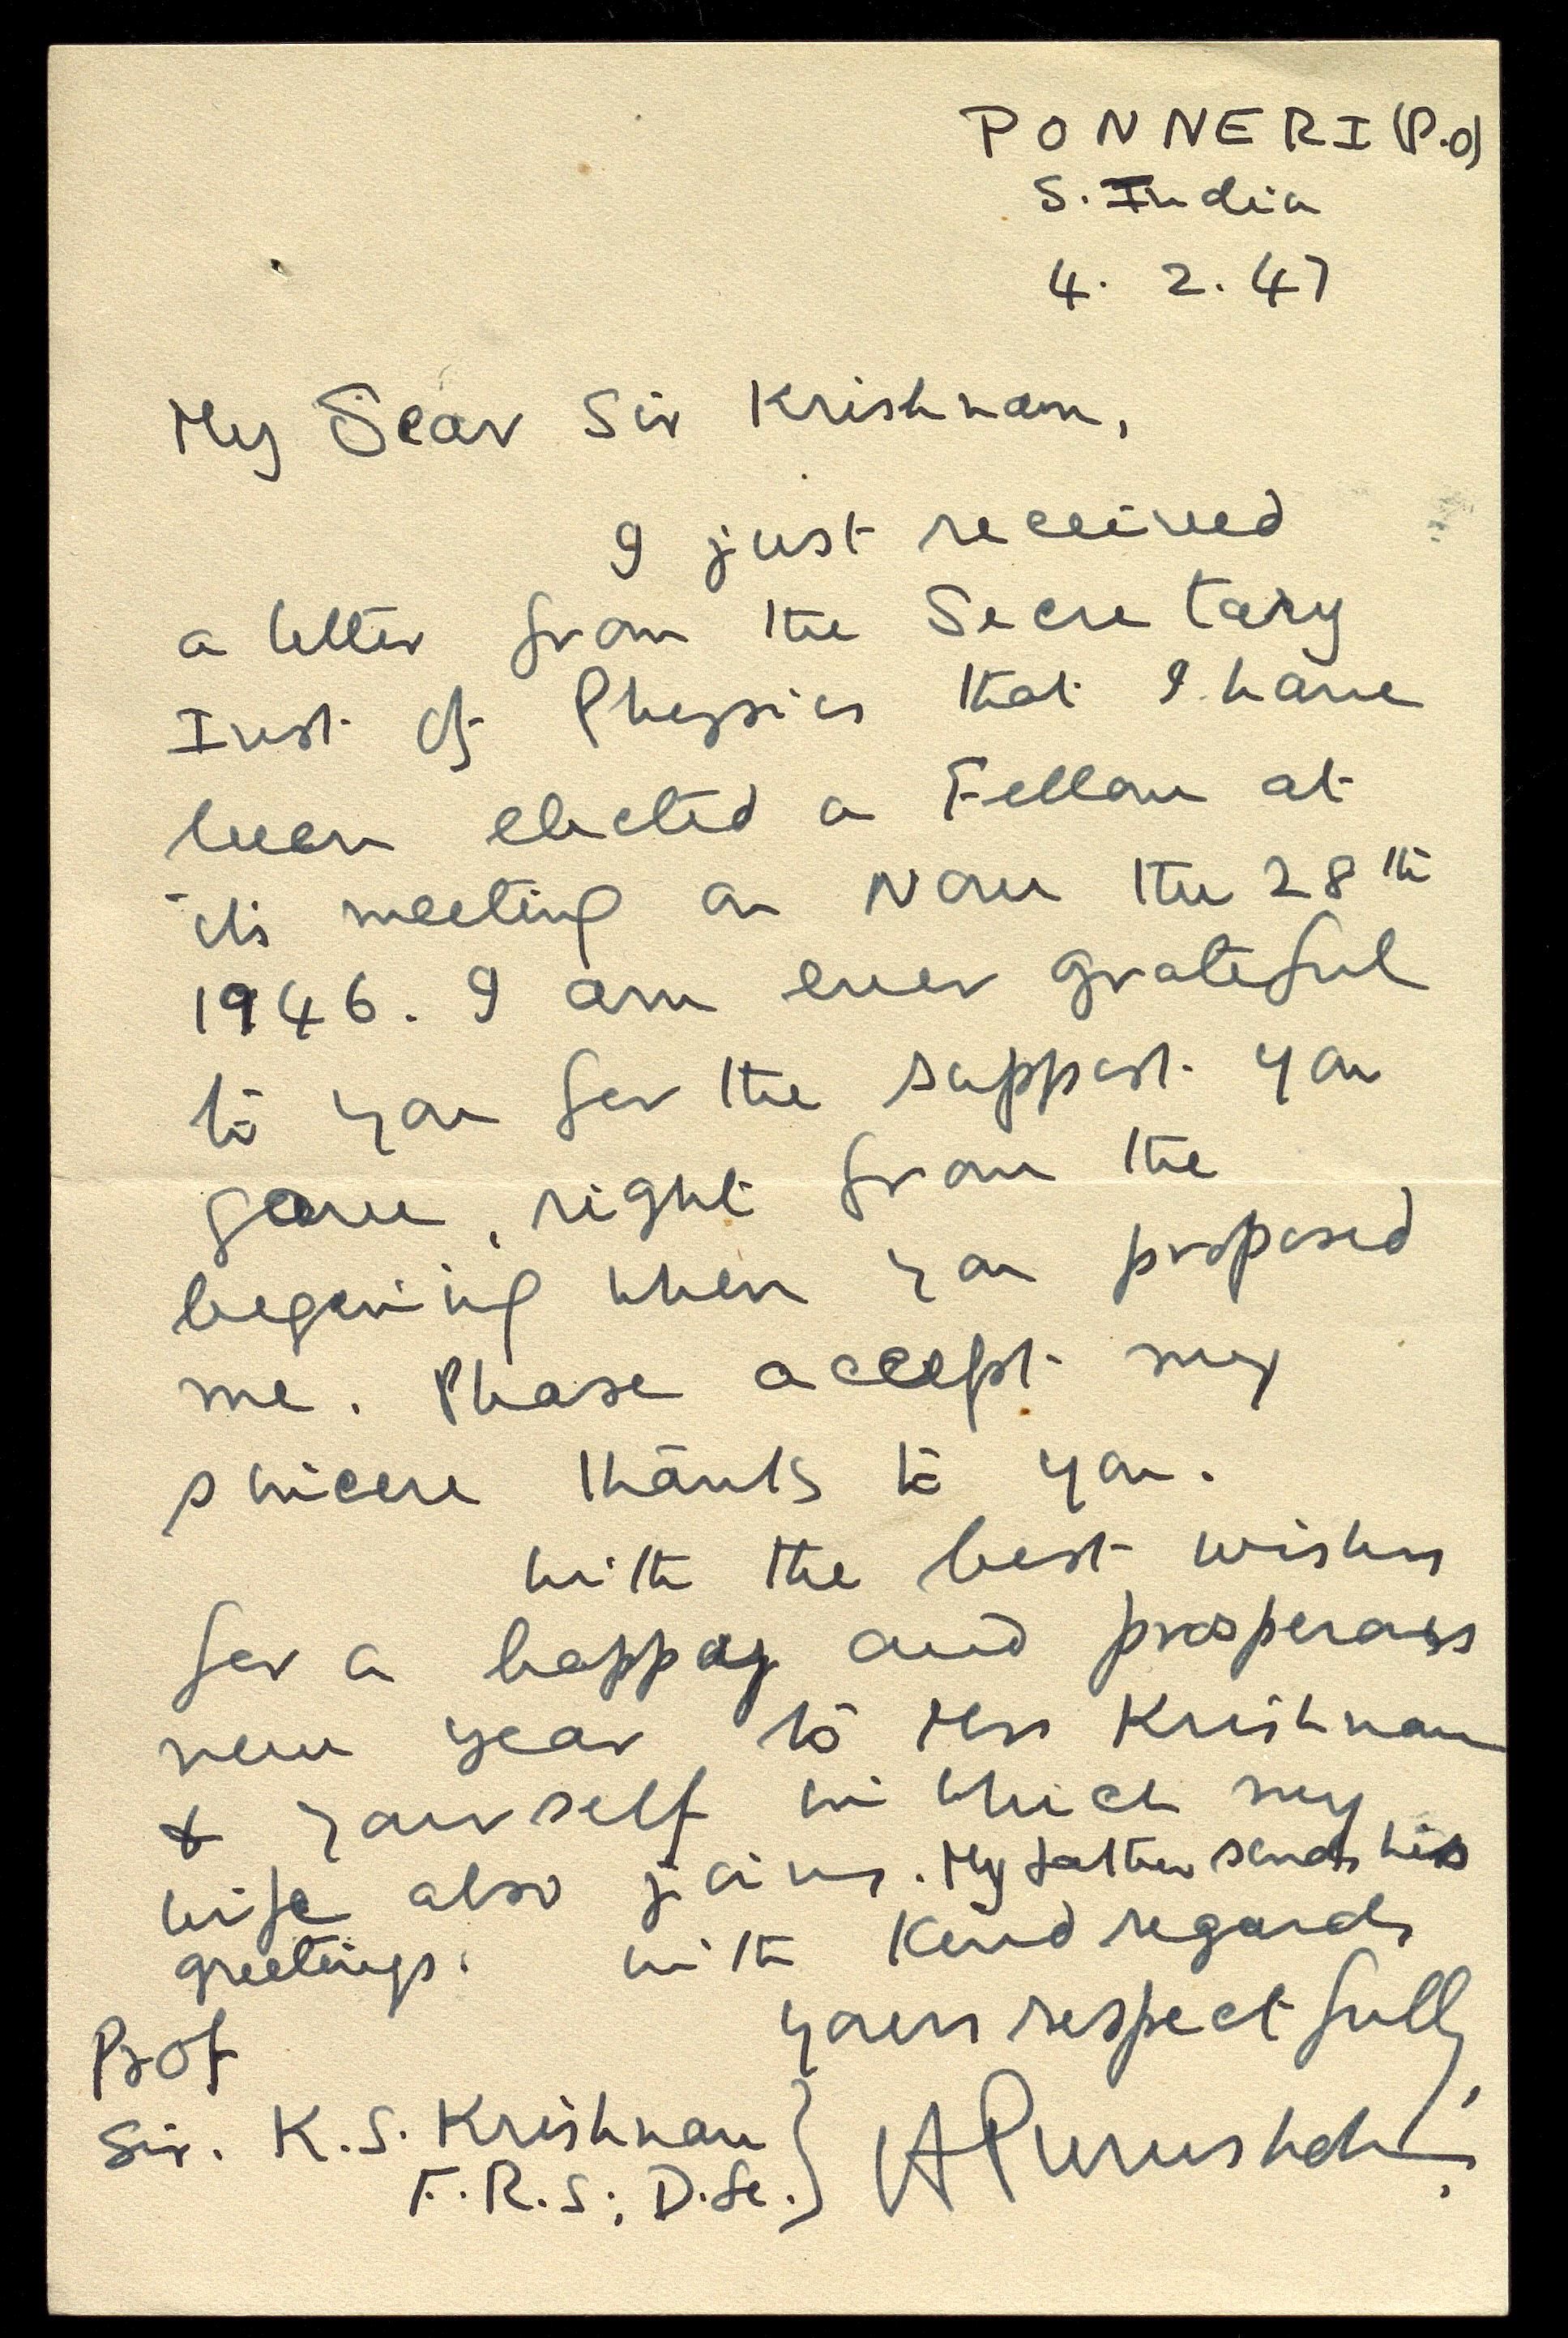 PONNERI (P.O)
S. India
4. 2. 47
My Dear Sir Krishnan,
I just received
a letter from the Secretary
Inst of Physics that I have
been elected a Fellow at
its meeting on Nov the 28th
1946. I am ever grateful
to you for the support you
gave, right from the
begining when you proposed
me. Please accept my
sincere thanks to you.
With the best wishes
for a happy and prosperous
new year to Mrs Krishnan
& yourself in which my
wife also joins. My father sends his
greetings. With Kind regards
yours respectfully,
Prof
Sir. K.S. Krishnan
F.R.S; D.Sc.